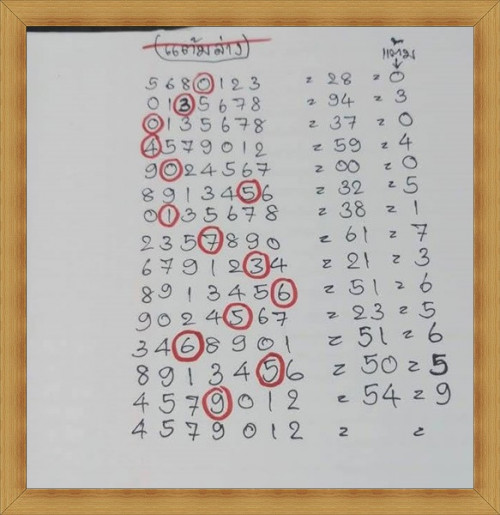 (แต้มล่าง) แต้ม
5 6 8 0 1 2 3 = 28 = 0
0 1 3 5 6 7 8 = 94 = 3
0 1 3 5 6 7 8 = 37 = 0
4 5 7 9 0 1 2 = 59 = 4
9 0 2 4 5 6 7 = 00 = 0
8 9 1 3 4 5 6 = 32 = 5
0 1 3 5 6 7 8 = 38 = 1
2 3 5 7 8 9 0 = 61 = 7
6 7 9 1 2 3 4 = 21 = 3
8 9 1 3 4 5 6 = 51 = 6
9 0 2 4 5 6 7 = 23 = 5
3 4 6 8 9 0 1 = 51 = 6
8 9 1 3 4 5 6 = 50 = 5
4 5 7 9 0 1 2 = 54 = 9
4 5 7 9 0 1 2 = =